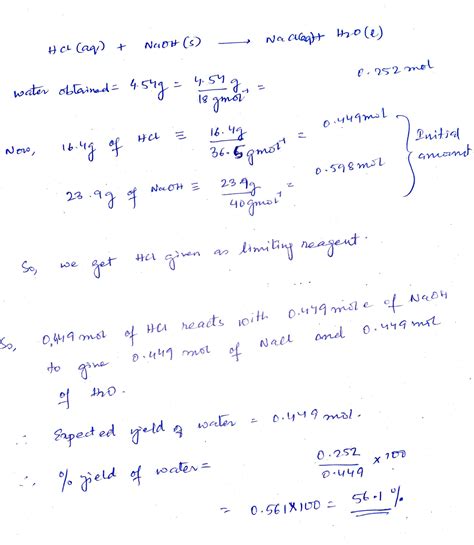 HCl (aq) + NaOH (s) ⟶ NaCl(aq) + H2O (l)
water obtained = 4.54g = 4.54 g / 18 gmol⁻¹ = 0.252 mol
Now, 16.4g of HCl ≡ 16.4g / 36.5 gmol⁻¹ = 0.449 mol
23.9g of NaOH ≡ 23.9g / 40 gmol⁻¹ = 0.598 mol } Initial amount
So, we get HCl given as limiting reagent.
So, 0.449 mol of HCl reacts with 0.449 mole of NaOH
to give 0.449 mol of NaCl and 0.449 mol
of H2O.
∴ Expected yield of water = 0.449 mol.
∴ % yield of water = 0.252 / 0.449 × 100
= 0.561 × 100 = 56.1 %